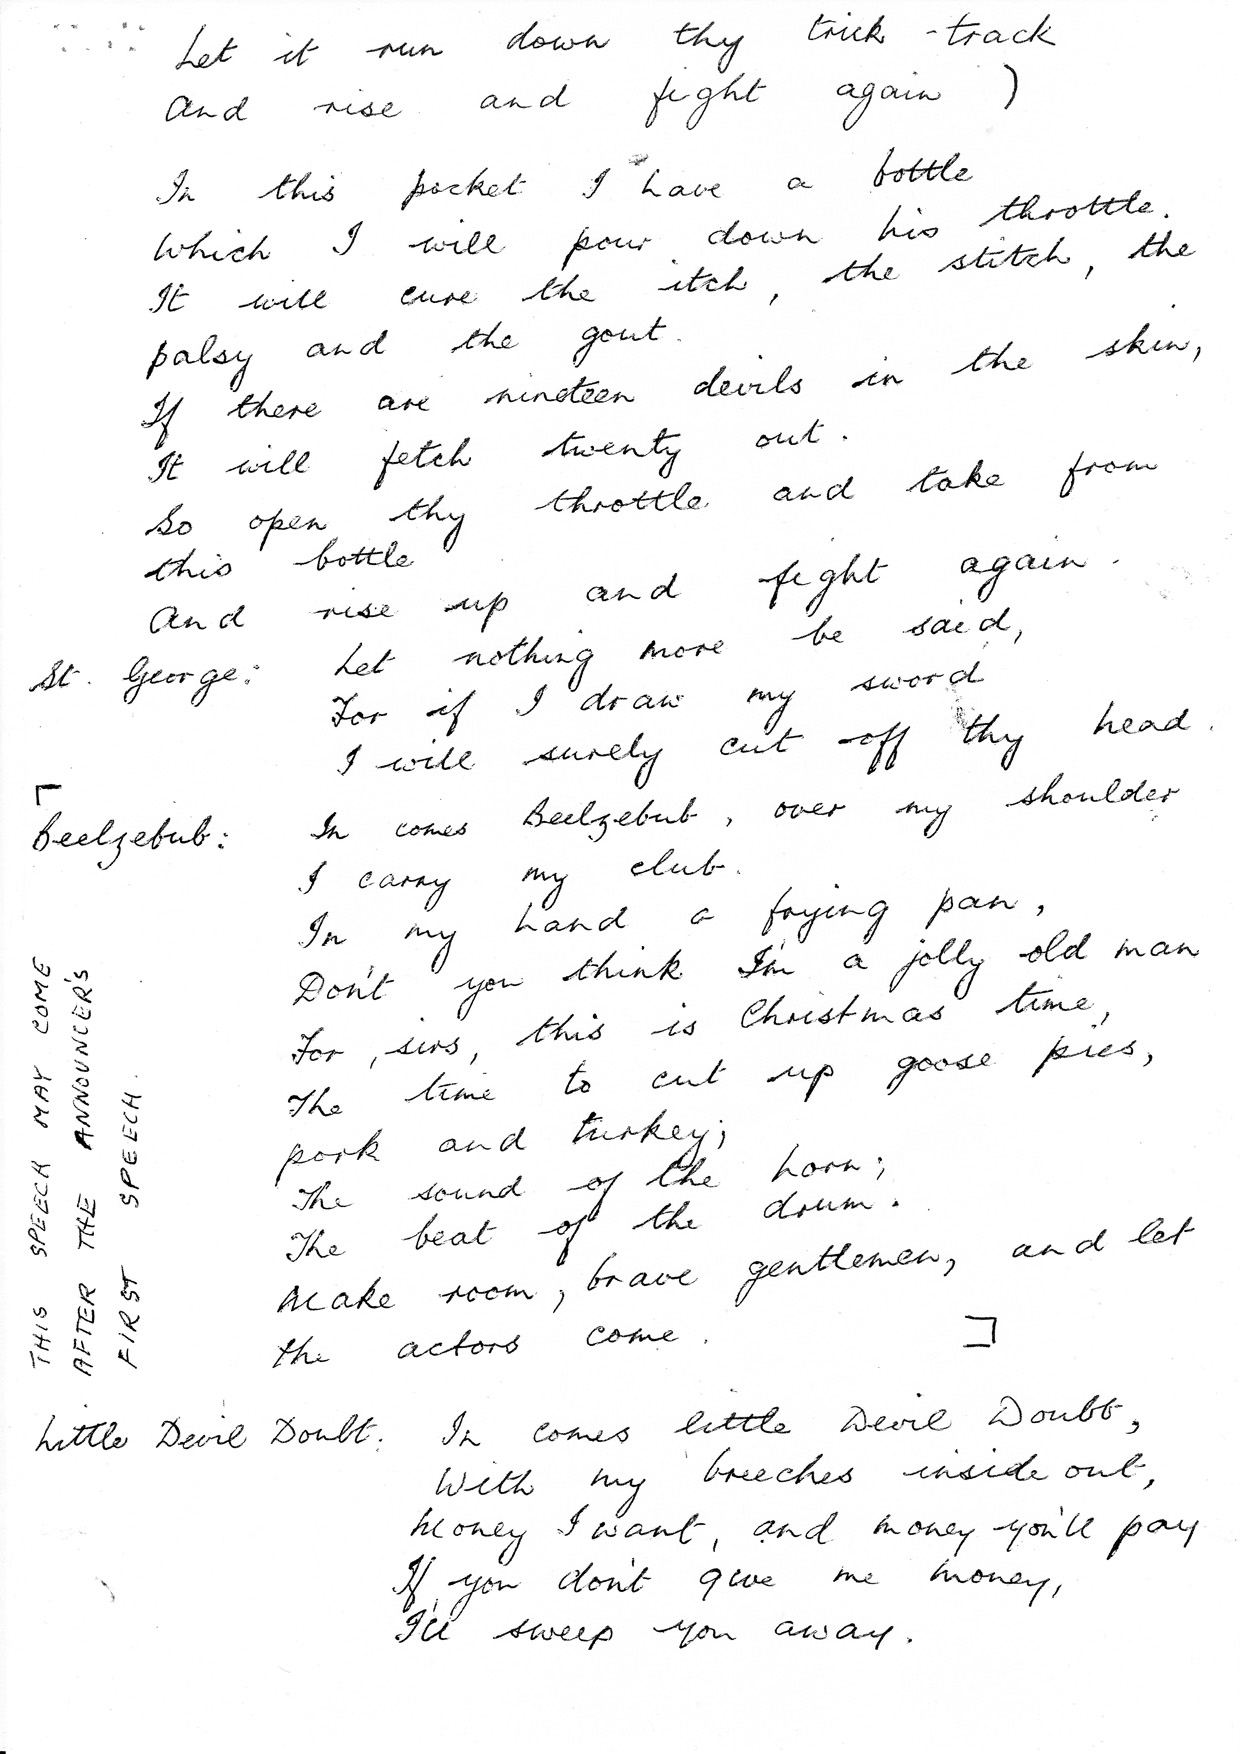 Let it run down thy trick-track
And rise and fight again )
In this pocket I have a bottle
Which I will pour down his throttle.
It will cure the itch, the stitch, the
palsy and the gout.
If there are nineteen devils in the skin,
It will fetch twenty out.
So open thy throttle and take from
this bottle
And rise up and fight again.
St. George: Let nothing more be said,
For if I draw my sword
I will surely cut off thy head.
Beelzebub: In comes Beelzebub, over my shoulder
I carry my club.
In my hand a frying pan,
Don't you think I'm a jolly old man
For, sirs, this is Christmas time,
The time to cut up goose pies,
pork and turkey;
The sound of the horn;
The beat of the drum.
Make room, brave gentlemen, and let
the actors come. ]
THIS SPEECH MAY COME
AFTER THE ANNOUNCER'S
FIRST SPEECH.
Little Devil Doubt: In comes little Devil Doubt,
With my breeches inside out,
Money I want, and money you'll pay
If you don't give me money,
I'll sweep you away.